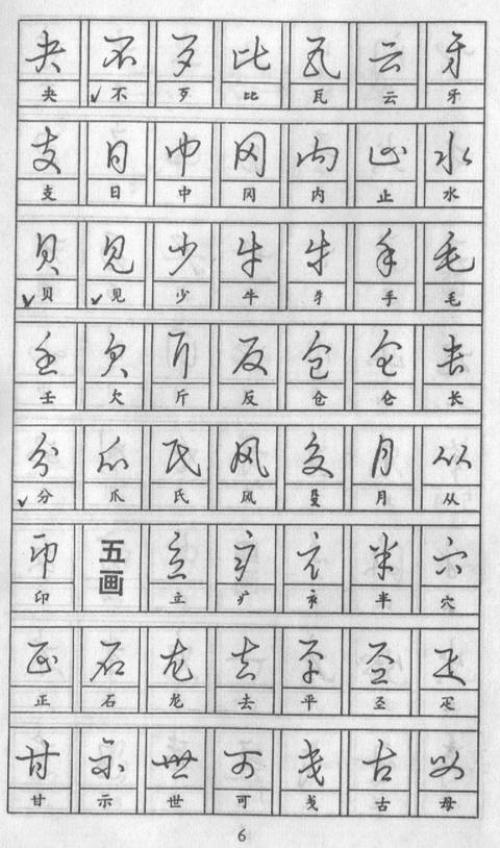 夬 不 歹 比 瓦 云 牙
夬 ✓不 歹 比 瓦 云 牙
支 日 中 冈 内 止 水
支 日 中 冈 内 止 水
贝 见 少 牛 牜 手 毛
✓贝 ✓见 少 牛 牜 手 毛
壬 欠 斤 反 仓 仑 长
壬 欠 斤 反 仓 仑 长
分 爪 氏 风 殳 月 从
✓分 爪 氏 风 殳 月 从
印 五画 立 疒 衤 半 穴
印 立 疒 衤 半 穴
正 石 龙 去 平 圣 疋
正 石 龙 去 平 圣 疋
甘 示 世 可 戋 古 母
甘 示 世 可 戋 古 母
6